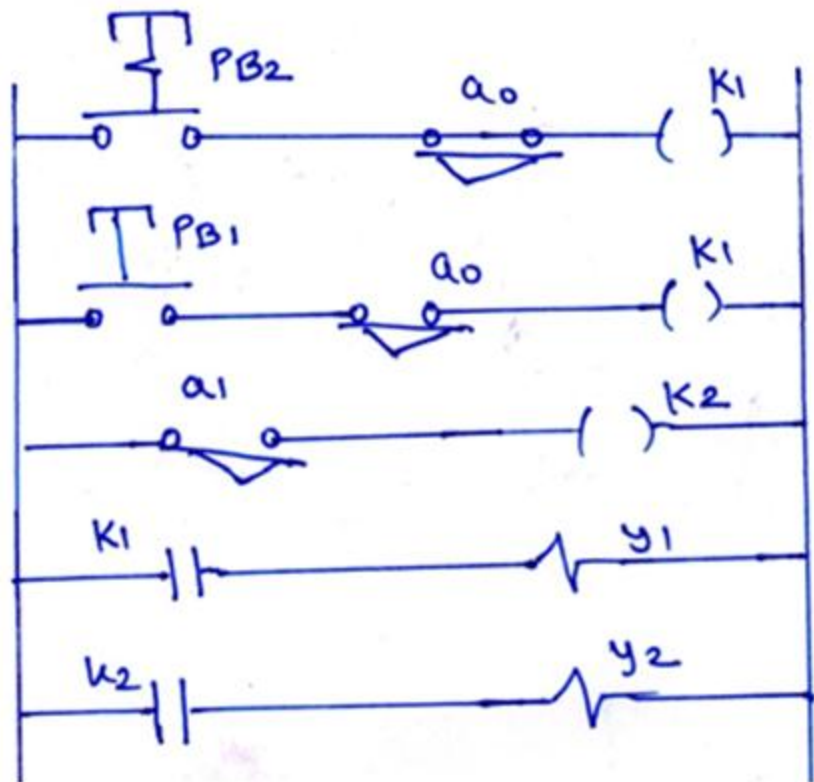 PB2 a0 K1
PB1 a0 K1
a1 K2
K1 y1
K2 y2